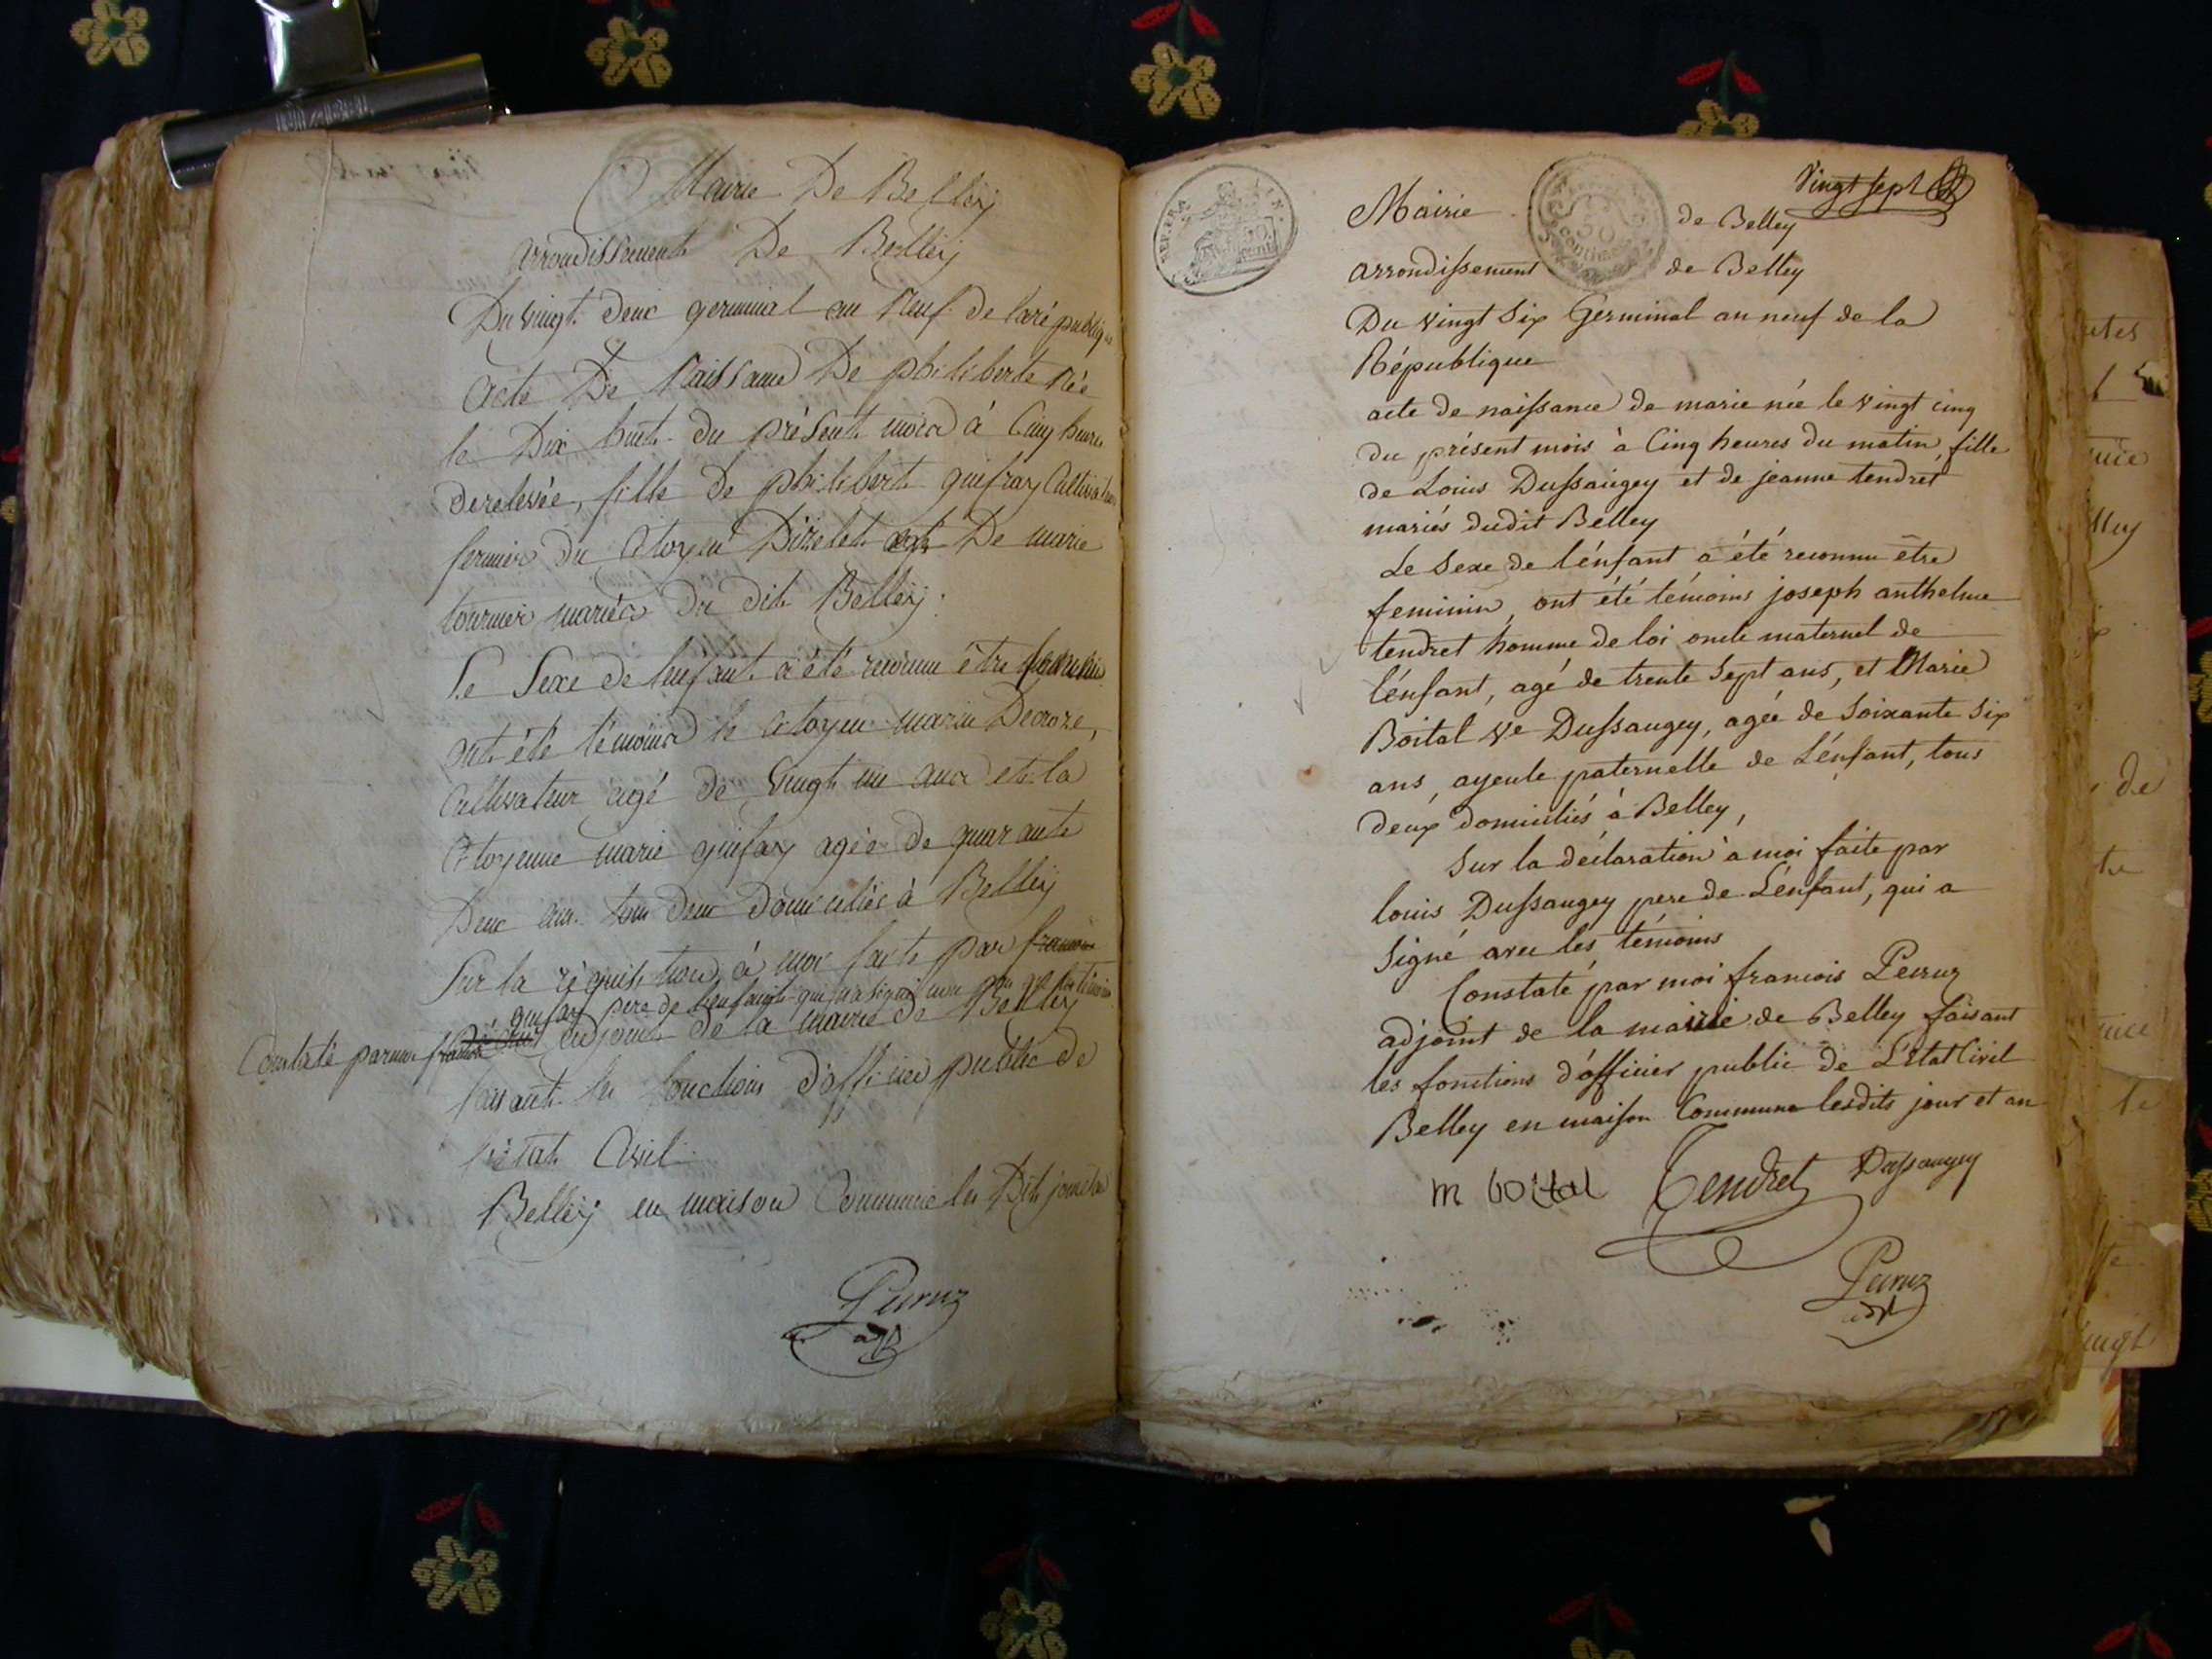 Mairie De Belleÿ
arrondissement De Belleÿ
Du vingt deux germinal an Neuf de la république
Acte De Naissance De philiberte Née
le Dix huit du présent mois à Cinq heures
de relevée, fille de philibert guifray Cultivateur
fermier du Citoyen et De marie
tournier mariés du dit Belleÿ.
Le Sexe de l'enfant a été reconnu être
ont été témoins le Citoyen marin Decroze,
Cultivateur agé de Vingt un ans et la
Citoyenne marie guifray agée de quarante
Deux ans tous deux domiciliés à Belleÿ
Sur la réquisition à moi faite par
guifray pere de l'enfant qui n'a signé
Constaté par moi adjoint de la mairie de Belleÿ
faisant les fonctions d'officier public de
l'état Civil
Belleÿ en maison Commune les Dits jour et an
Peyruz
adj
Vingt sept
REP. FRA.
50
centimes
Mairie de Belley
arrondissement de Belley
Du vingt Six Germinal an neuf de la
République
acte de naissance de marie née le vingt cinq
du présent mois à Cinq heures du matin, fille
de Louis Dussaugey et de jeanne tendret
mariés dudit Belley
Le Sexe de l'énfant a été reconnu être
feminin, ont été témoins joseph anthelme
tendret homme de loi oncle maternel de
l'énfant, agé de trente Sept ans, et Marie
Boital Ve Dussaugey, agée de Soixante Six
ans, ayeule paternelle de L'énfant, tous
deux domiciliés à Belley,
Sur la déclaration à moi faite par
louis Dussaugey pere de L'énfant, qui a
Signé avec les témoins
Constaté par moi francois Peyruz
adjoint de la mairie de Belley faisant
les fonctions d'officier public de L'Etat Civil
Belley en maison Commune lesdits jour et an
m boital Tendret Dussaugey
Peyruz
adj